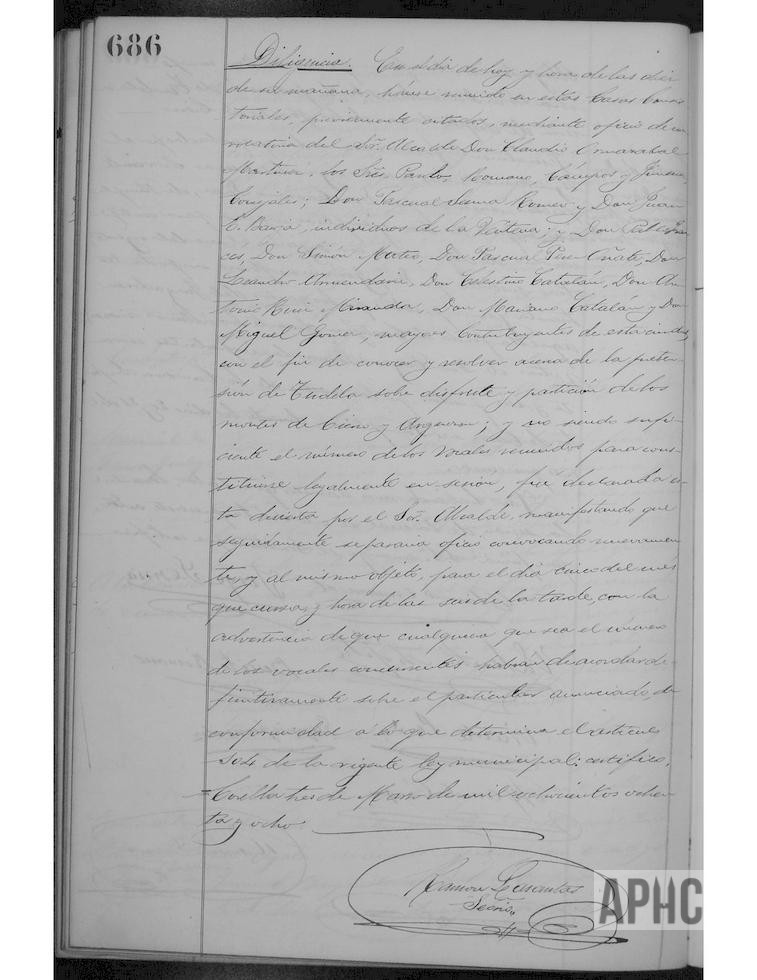 686
Diligencia. En el dia de hoy y hora de las diez
de su mañana, hánse reunido en estas Casas Consis
toriales, previamente citados, mediante oficio de con
vocatoria del Sr. Alcalde Don Claudio
Martinez, los Sres Pardo, Romano, Campos y Jimenez
Concejales; Don Pascual Sanna Romeo y Don Juan
C. , individuos de la Veintena; y Don
cés, Don Simón Mateo, Don Pascual Oñate, Don
Leandro Armendariz, Don Celestino Catalán, Don An
tonio Miranda, Don Mariano Catalán y Don
Miguel Gomez, mayores contribuyentes de esta ciudad,
con el fin de conocer y resolver acerca de la preten
sión de Tudela sobre disfrute y partición de los
montes de Cierzo y Argenzon; y no siendo sufi
ciente el número de los Vocales reunidos para cons
tituirse legalmente en sesión, fué declarada es
ta desierta por el Sor. Alcalde, manifestando que
seguidamente se pasaria oficio convocando nuevamen
te, y al mismo objeto, para el dia cinco del mes
que cursa, y hora de las seis de la tarde, con la
advertencia de que cualquiera que sea el número
de los vocales concurrentes habrán de acordar de
finitivamente sobre el particular anunciado, de
conformidad á lo que determina el articulo
de la vigente ley municipal: certifico.
Corella tres de Marzo de mil ochocientos ochen
ta y ocho
Ramon
Secrio.
APHC